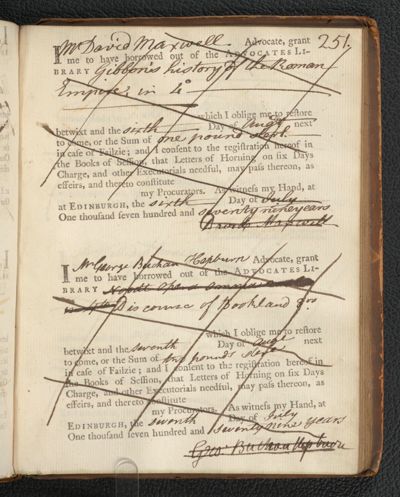 251.
I Mr David Maxwell Advocate, grant
me to have borrowed out of the ADVOCATES LI-
BRARY Gibbon's history of the Roman
Empire in 4o
which I oblige me to restore
betwixt and the sixth Day of Augt next
to come, or the Sum of one pound sterl.
in case of Failzie; and I consent to the registration hereof in
the Books of Session, that Letters of Horning on six Days
Charge, and other Executorials needful, may pass thereon, as
effeirs, and thereto constitute
my Procurators. As witness my Hand, at
at EDINBURGH, the sixth Day of July
One thousand seven hundred and seventy nine years
David Maxwell
I Mr George Buchan Hepburn Advocate, grant
me to have borrowed out of the ADVOCATES LI-
BRARY opera omnia
Discourse of
which I oblige me to restore
betwixt and the seventh Day of Augt next
to come, or the Sum of one pound sterl.
in case of Failzie; and I consent to the registration hereof in
the Books of Session, that Letters of Horning on six Days
Charge, and other Executorials needful, may pass thereon, as
effeirs, and thereto constitute
my Procurators. As witness my Hand, at
EDINBURGH, the seventh Day of July
One thousand seven hundred and seventy nine years
Geo: Buchan Hepburn